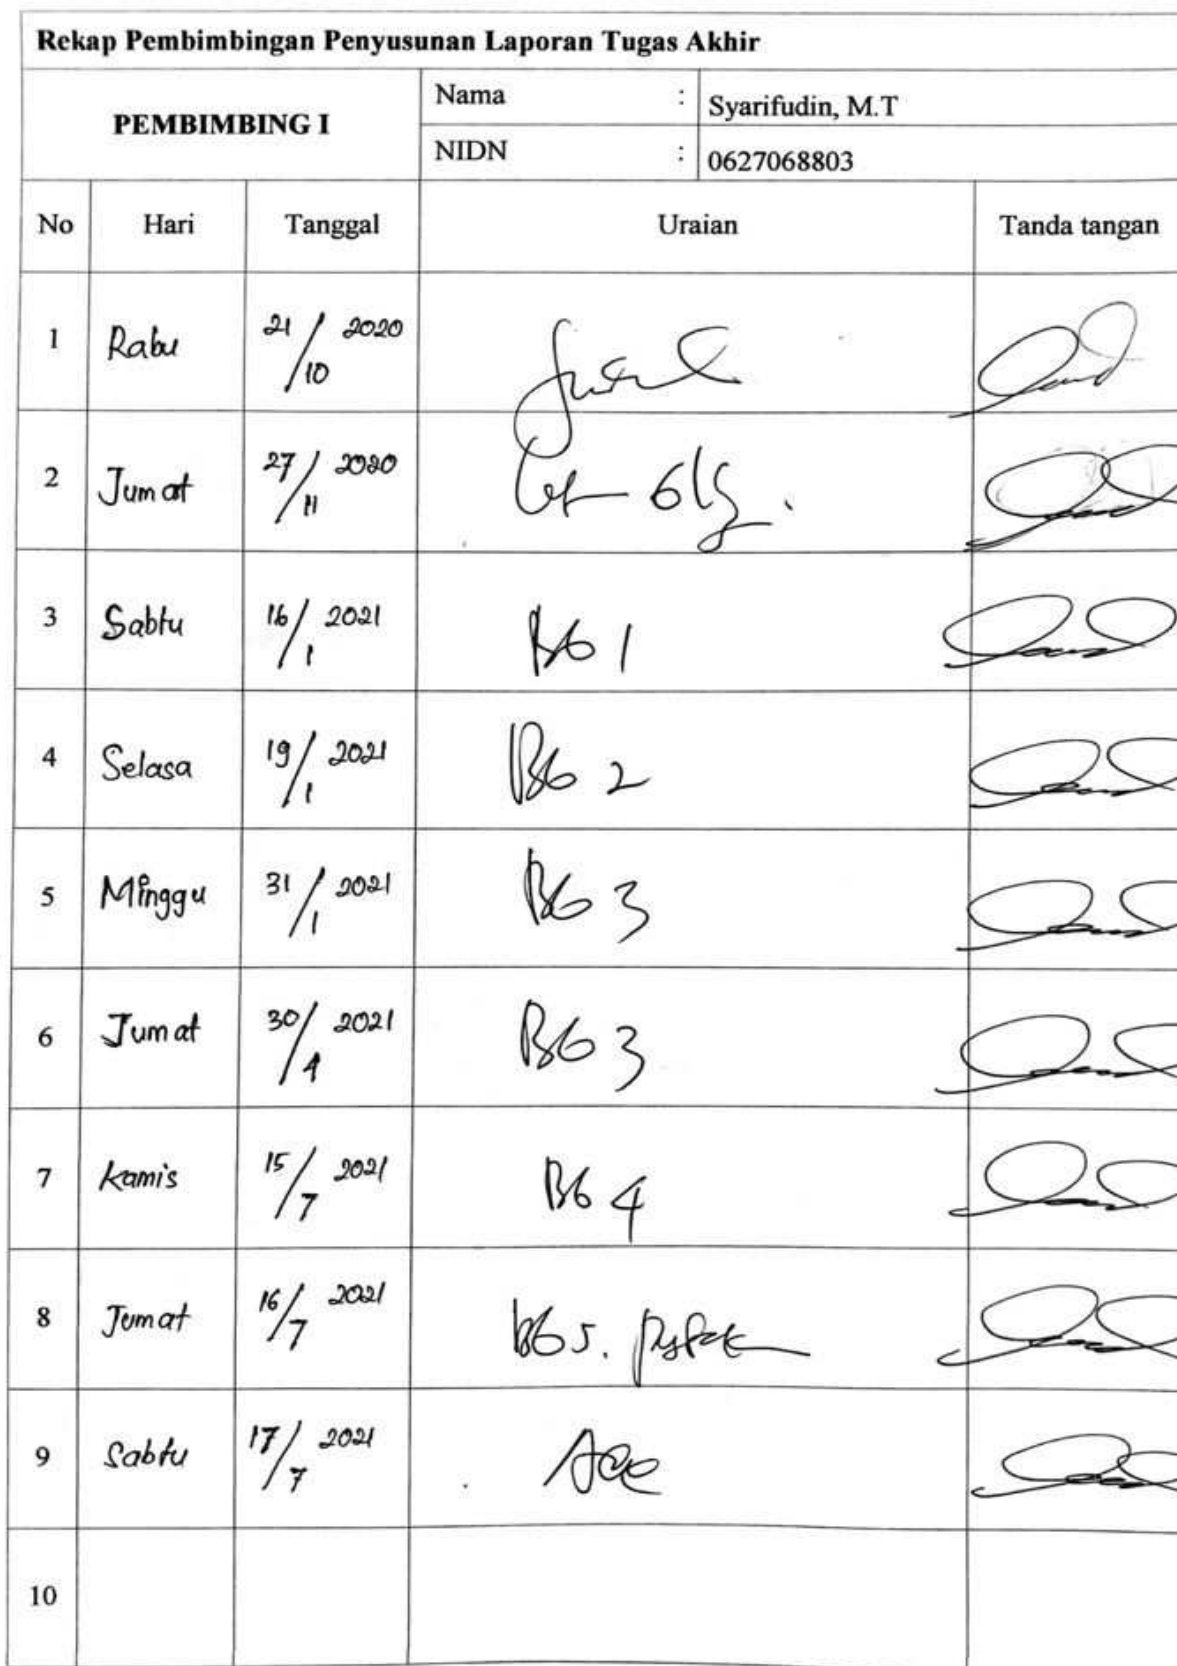 Rekap Pembimbingan Penyusunan Laporan Tugas Akhir
PEMBIMBING I
Nama : Syarifudin, M.T
NIDN : 0627068803
No Hari Tanggal Uraian Tanda tangan
1 Rabu 21/10 2020
2 Jumat 27/11 2020
3 Sabtu 16/1 2021 1
4 Selasa 19/1 2021 2
5 Minggu 31/1 2021 3
6 Jumat 30/4 2021 3
7 Kamis 15/7 2021 4
8 Jumat 16/7 2021 5.
9 Sabtu 17/7 2021 Acc
10